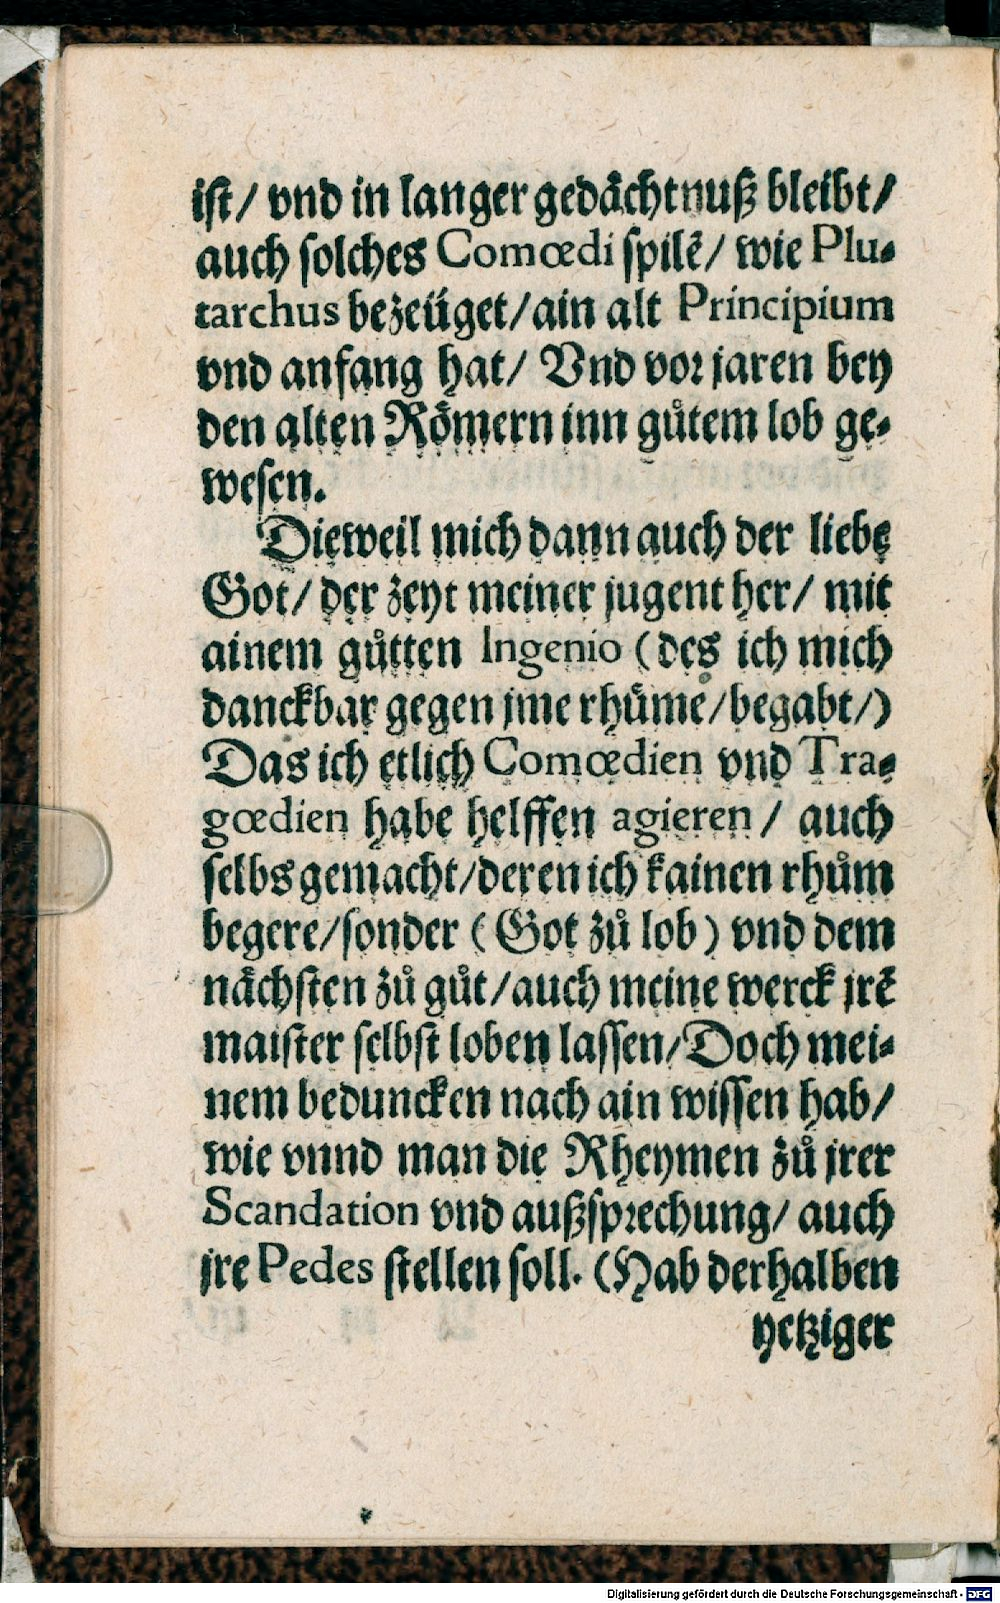 ist/ vnd in langer gedaͤchtnuß bleibt/
auch solches Comœdi spilē/ wie Plu⸗
tarchus bezeüget/ain alt Principium
vnd anfang hat/ Vnd vor jaren bey
den alten Roͤmern inn gůtem lob ge⸗
wesen.
Dieweil mich dann auch der liebe
Got/ der zeyt meiner jugent her/ mit
ainem gůtten Ingenio (des ich mich
danckbar gegen jme rhuͤme/begabt/)
Das ich etlich Comœdien vnd Tra⸗
gœdien habe helffen agieren/ auch
selbs gemacht/deren ich kainen rhům
begere/sonder (Got zů lob) vnd dem
naͤchsten zů gůt/auch meine werck jrē
maister selbst loben lassen/Doch mei⸗
nem beduncken nach ain wissen hab/
wie vnnd man die Rheymen zů jrer
Scandation vnd außsprechung/ auch
jre Pedes stellen soll. (Hab derhalben
yetziger
Digitalisierung gefördert durch die Deutsche Forschungsgemeinschaft - DFG